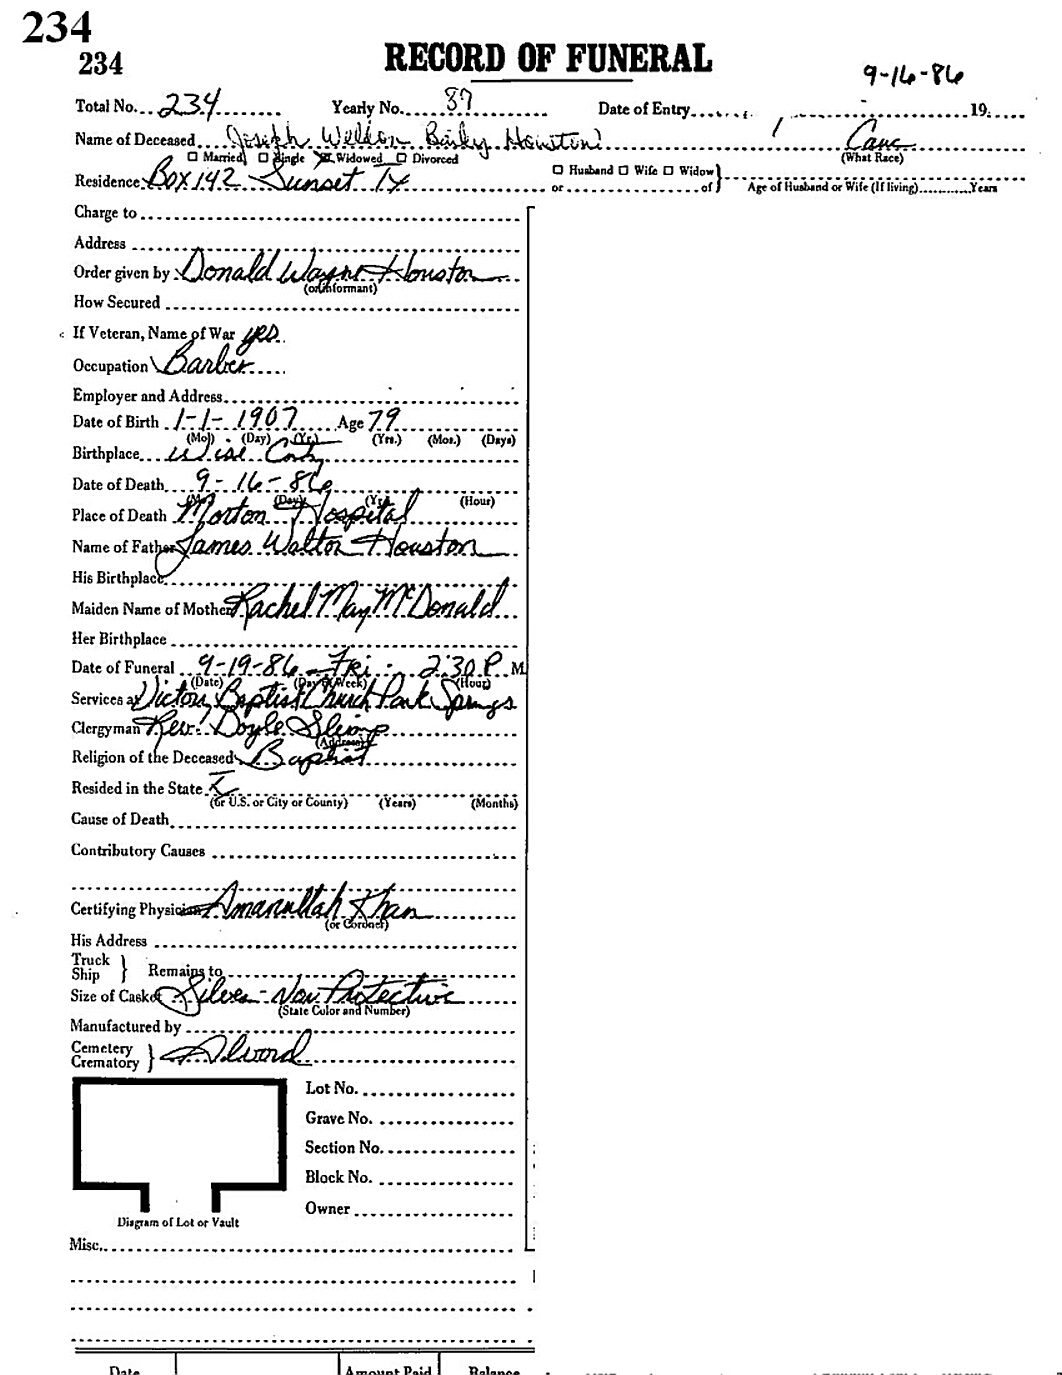 234
234
RECORD OF FUNERAL
9-16-86
Total No. 234 Yearly No. 87 Date of Entry 19
Name of Deceased Joseph Weldon Baily Houston Cauc
☐ Married ☐ Single ☒ Widowed ☐ Divorced (What Race)
Residence Box 142 Sunset Tx ☐ Husband ☐ Wife ☐ Widow }
or of } Age of Husband or Wife (If living) Years
Charge to
Address
Order given by Donald Wayne Houston
(or Informant)
How Secured
If Veteran, Name of War yes
Occupation Barber
Employer and Address
Date of Birth 1-1-1907 Age 79
(Mo) (Day) (Yr.) (Yrs.) (Mos.) (Days)
Birthplace Wise Cnty
Date of Death 9-16-86
(Day) (Yr.) (Hour)
Place of Death Morton Hospital
Name of Father James Walton Houston
His Birthplace
Maiden Name of Mother Rachel May McDonald
Her Birthplace
Date of Funeral 9-19-86 Fri. 2:30 P. M.
(Date) (Day of Week) (Hour)
Services at Victory Baptist Church Park Springs
Clergyman Rev. Doyle Slimp
(Address)
Religion of the Deceased Baptist
Resided in the State
(or U.S. or City or County) (Years) (Months)
Cause of Death
Contributory Causes
Certifying Physician Amanullah Khan
(or Coroner)
His Address
Truck
Ship } Remains to
Size of Casket Silver-Non Protective
(State Color and Number)
Manufactured by
Cemetery
Crematory } Alvord
Lot No.
Grave No.
Section No.
Block No.
Owner
Diagram of Lot or Vault
Misc.
Date Amount Paid Balance